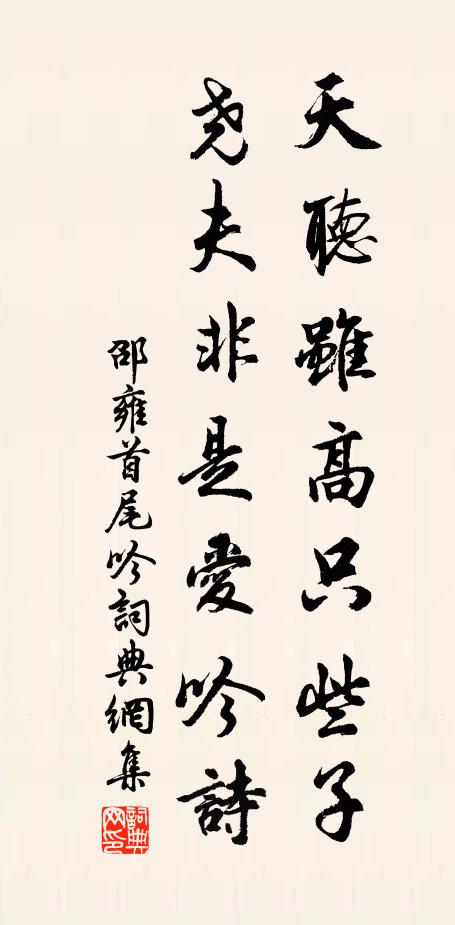 天聽雖高只些子
尧夫非是愛吟詩
邵雍首尾吟詞典網集
詞典網印